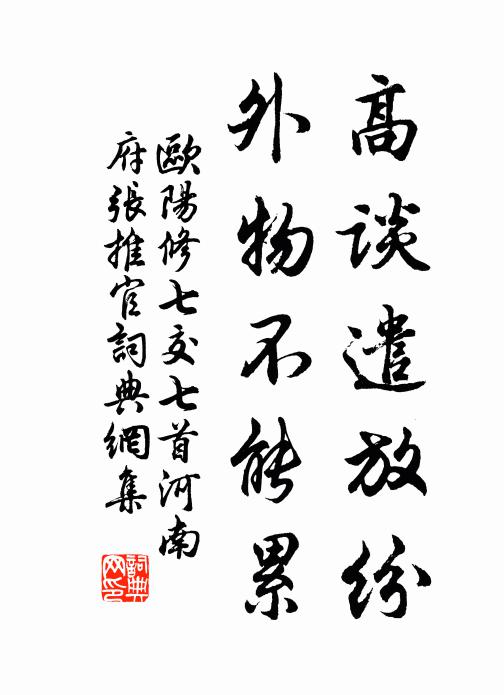 高談遣放紛
外物不能累
歐陽修七交七首河南
府張推官詞典網集
詞典网印